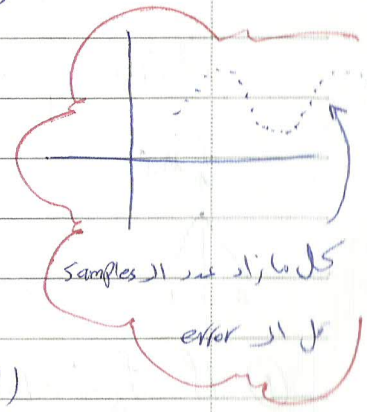 كل ما زاد عدد ال samples
قل ال error
)